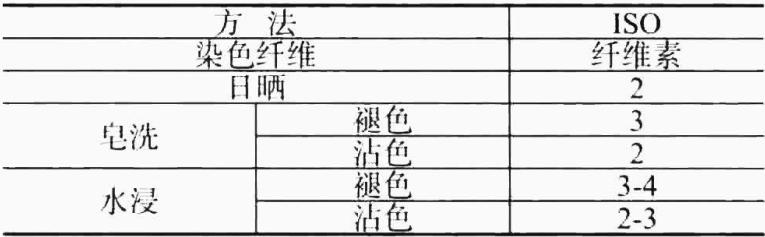 方 法 ISO
染色纤维 纤维素
日晒 2
皂洗 褪色 3
沾色 2
水浸 褪色 3-4
沾色 2-3